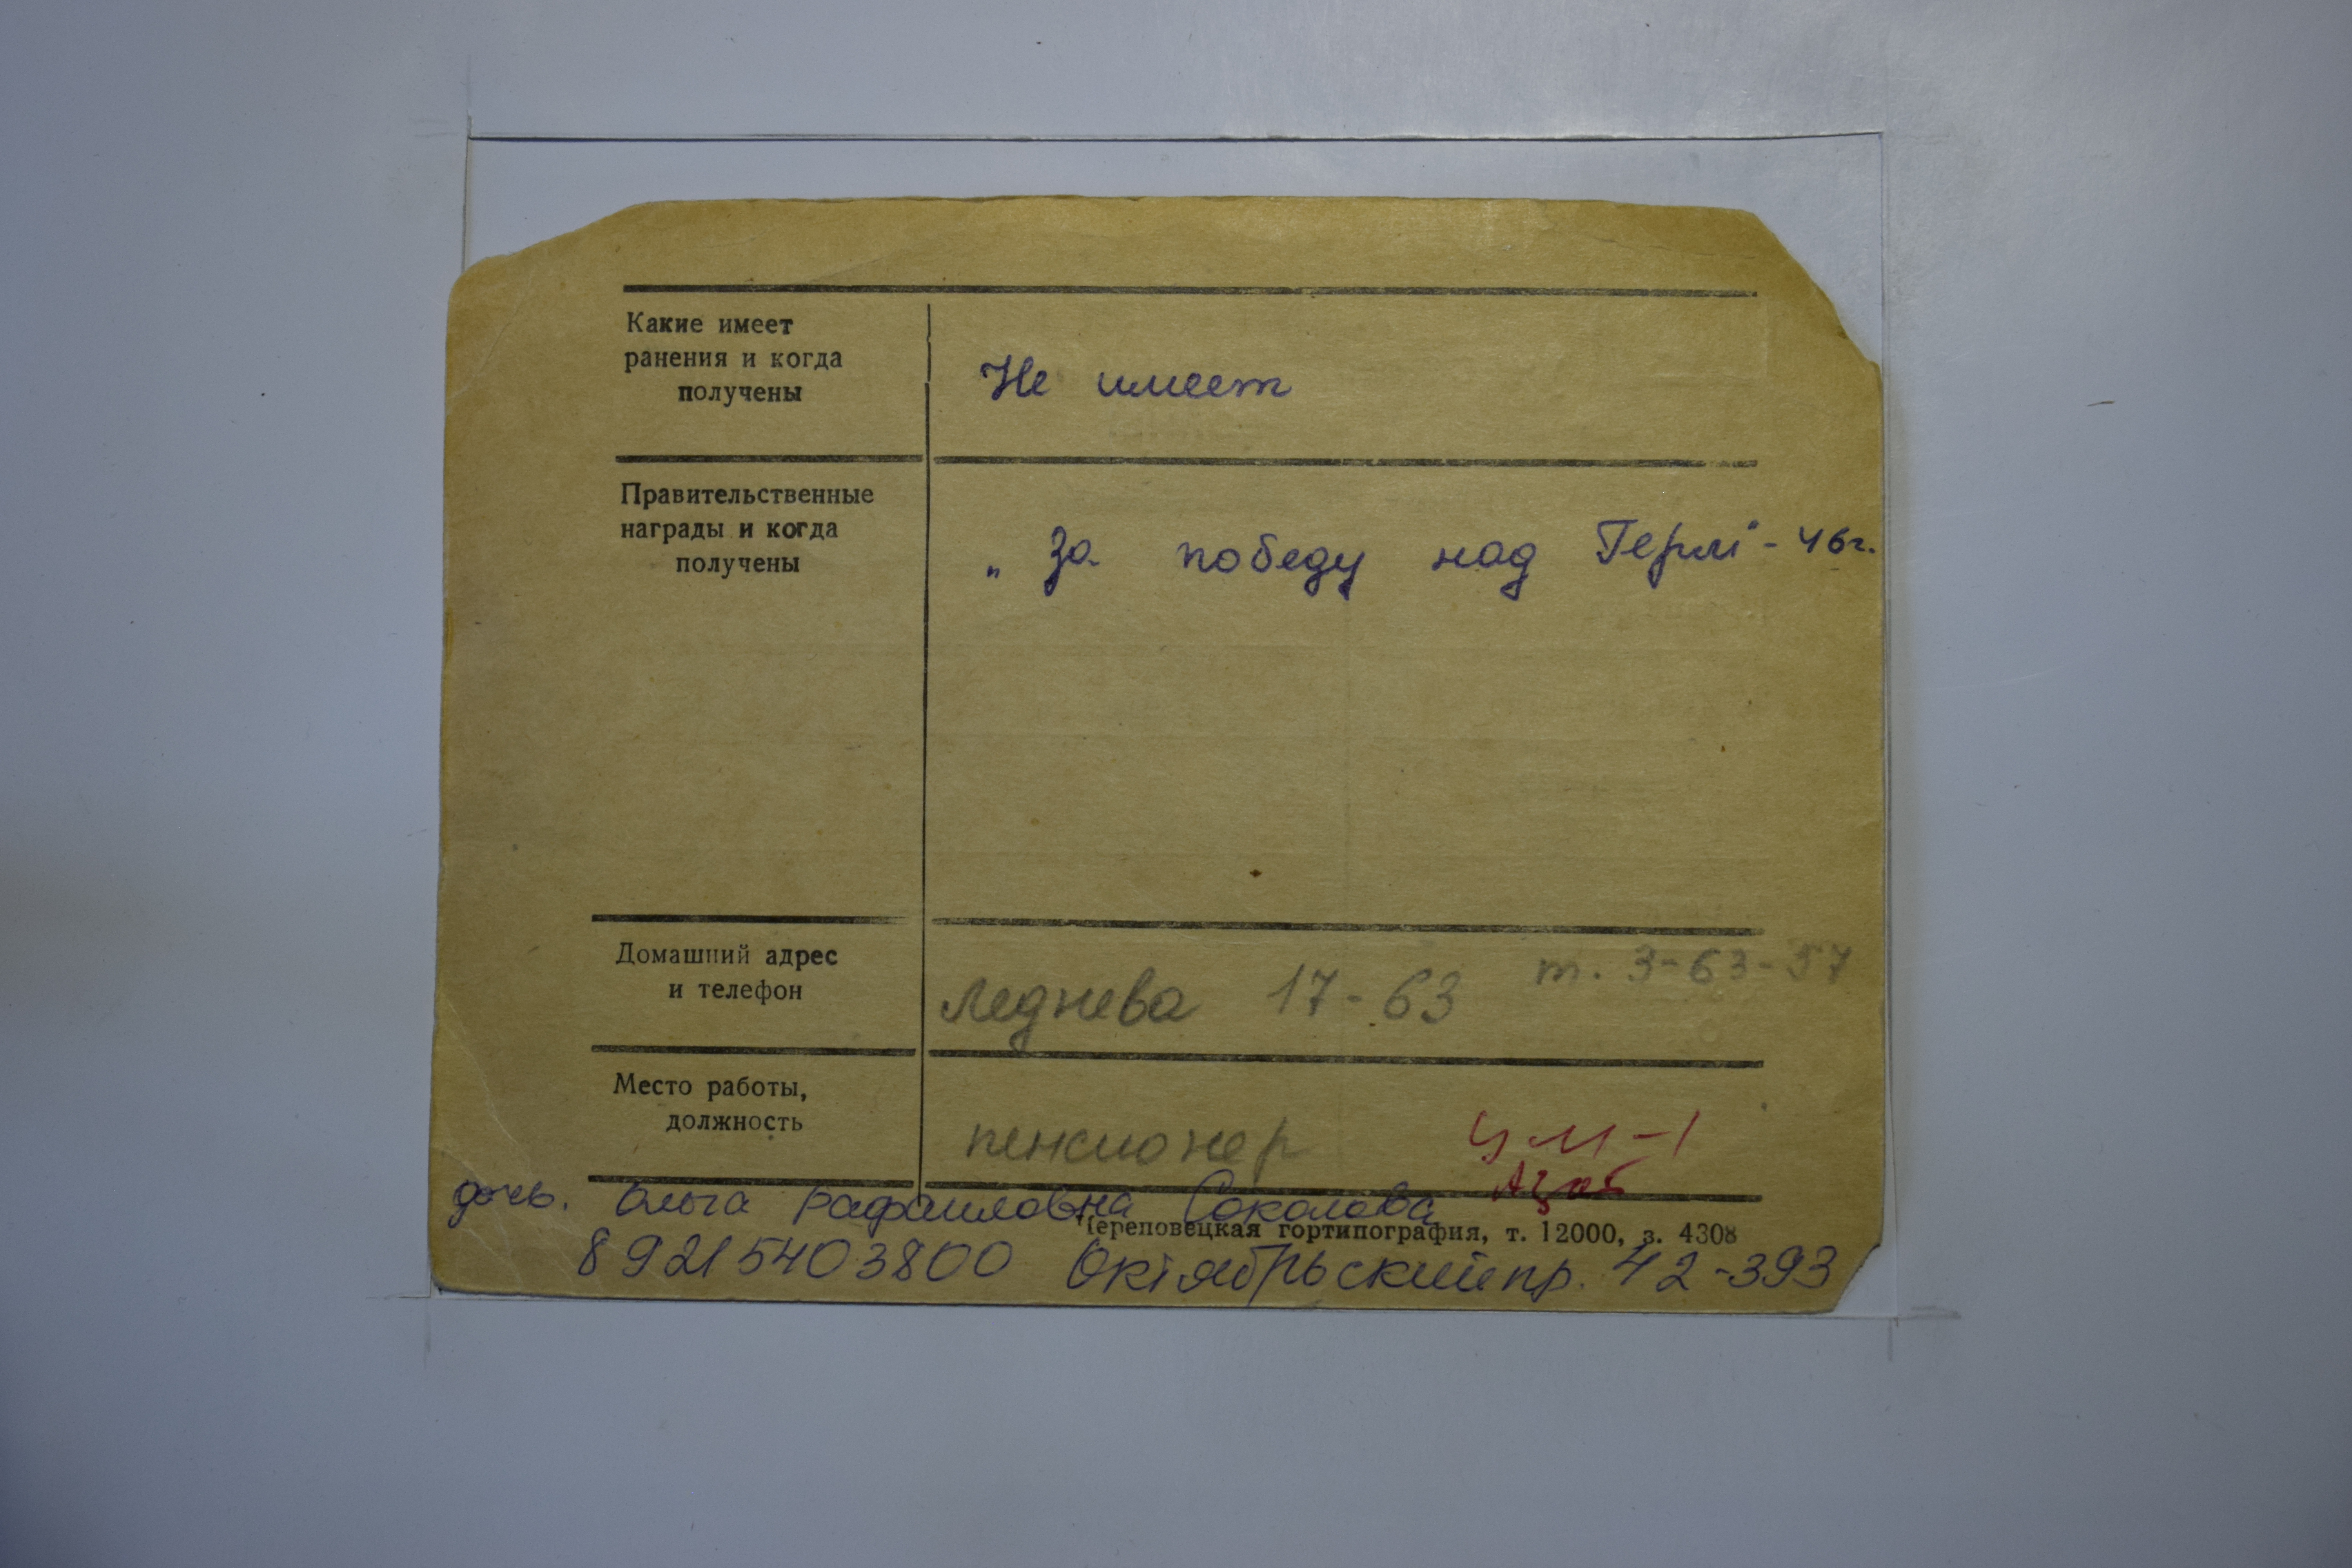 Какие имеет
ранения и когда
получены
Не имеет
Правительственные
награды и когда
получены
„За победу над Герм" - 46г.
Домашний адрес
и телефон
Леднева 17-63 т. 3-63-57
Место работы,
должность
пенсионер
дочь. Ольга Рафаиловна Соколова
Череповецкая гортипография, т. 12000, з. 4308
89215403800 Октябрьский пр. 42-393